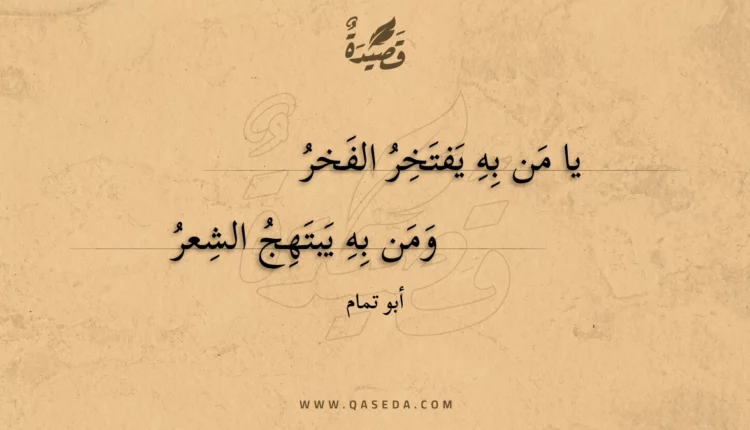 قَصِيدَةٌ
يا مَن بِهِ يَفتَخِرُ الفَخرُ
وَمَن بِهِ يَبتَهِجُ الشِعرُ
أبو تمام
WWW.QASEDA.COM